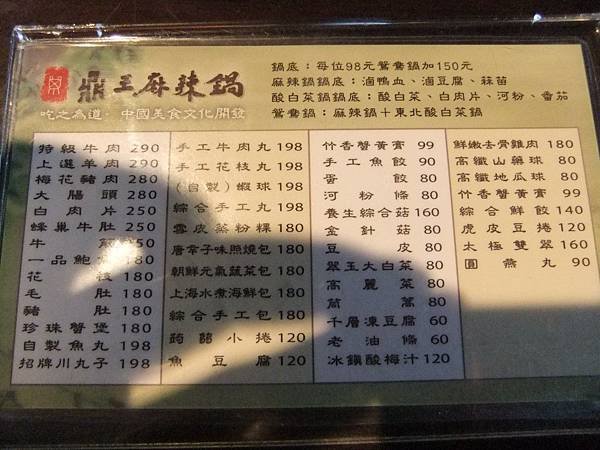 鼎王麻辣鍋
吃之為道‧中國美食文化開發
鍋底：每位98元鴛鴦鍋加150元
麻辣鍋鍋底：滷鴨血、滷豆腐、蒜苗
酸白菜鍋鍋底：酸白菜、白肉片、河粉、番茄
鴛鴦鍋：麻辣鍋＋東北酸白菜鍋
特級牛肉 290
上選羊肉 290
梅花豬肉 280
大腸頭 280
白肉片 250
蜂巢牛肚 250
牛筋 250
一品鮑
花枝 180
毛肚 180
豬肚 180
珍珠蟹堡 180
自製魚丸 198
招牌川丸子 198
手工牛肉丸 198
手工花枝丸 198
(自製)蝦球 198
綜合手工丸 198
雪皮蒸粉粿 180
唐辛子味照燒包 180
朝鮮元氣蔬菜包 180
上海水煮海鮮包 180
綜合手工包 180
蒟蒻小捲 120
魚豆腐 120
竹香蟹黃膏 99
手工魚餃 90
蛋餃 80
河粉條 80
養生綜合菇 160
金針菇 80
豆皮 80
翠玉大白菜 80
高麗菜 80
茼蒿 80
千層凍豆腐 60
老油條 60
冰鎮酸梅汁 120
鮮嫩去骨雞肉 180
高纖山藥球 80
高纖地瓜球 80
竹香蟹黃膏 99
綜合鮮餃 140
虎皮豆捲 120
太極雙翠 160
圓燕丸 90